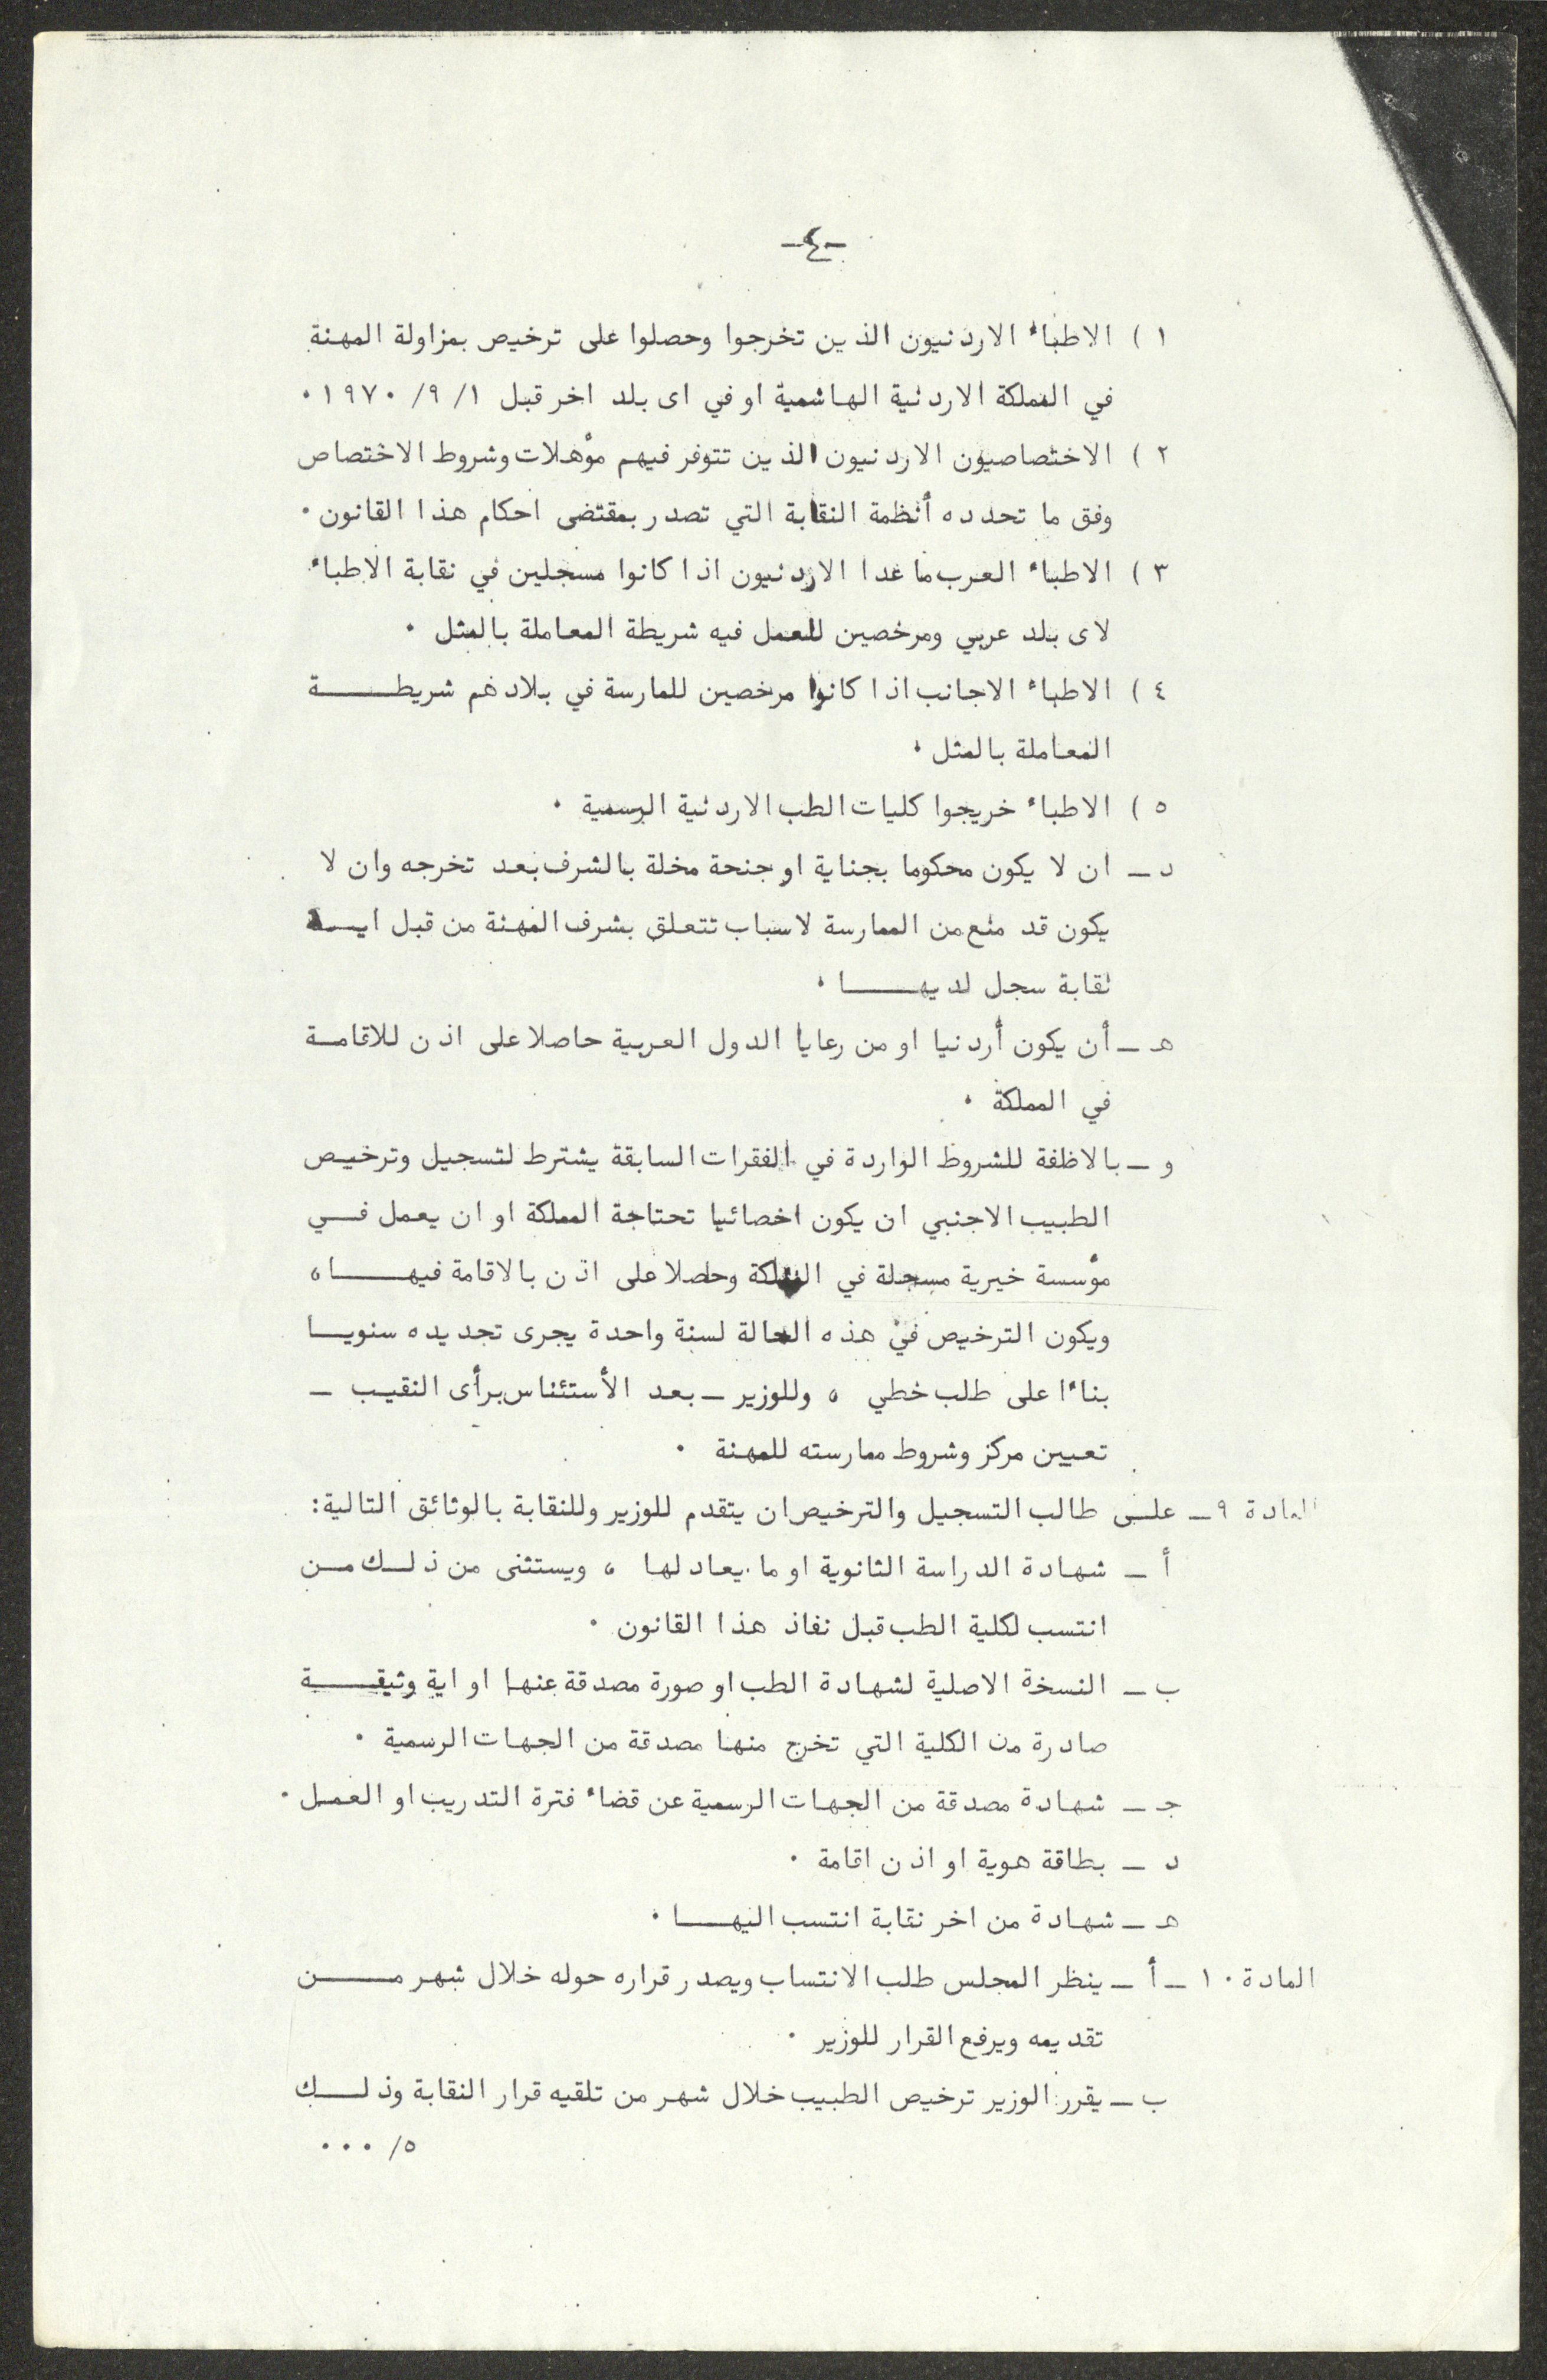 -٤-
١ ) الاطباء الاردنيون الذين تخرجوا وحصلوا على ترخيص بمزاولة المهنة
في المملكة الاردنية الهاشمية او في اى بلد اخر قبل ١ /٩ /١٩٧٠ .
٢ ) الاختصاصيون الاردنيون الذين تتوفر فيهم مؤهلات وشروط الاختصاص
وفق ما تحدده أنظمة النقابة التي تصدر بمقتضى احكام هذا القانون .
٣ ) الاطباء العرب ما عدا الاردنيون اذا كانوا مسجلين في نقابة الاطباء
لاى بلد عربي ومرخصين للعمل فيه شريطة المعاملة بالمثل .
٤ ) الاطباء الاجانب اذا كانوا مرخصين للمارسة في بلادهم شريطـــــة
المعاملة بالمثل .
٥ ) الاطباء خريجوا كليات الطب الاردنية الرسمية .
د ــ ان لا يكون محكوما بجناية او جنحة مخلة بالشرف بعد تخرجه وان لا
يكون قد منع من الممارسة لاسباب تتعلق بشرف المهنة من قبل ايـــة
نقابة سجل لديهـــــا .
هـ ــ أن يكون أردنيا او من رعايا الدول العربية حاصلا على اذن للاقامـة
في المملكة .
و ــ بالاظفة للشروط الواردة في الفقرات السابقة يشترط لتسجيل وترخيـص
الطبيب الاجنبي ان يكون اخصائيا تحتاجة المملكة او ان يعمل فـــي
مؤسسة خيرية مسجلة في المملكة وحاصلا على اذن بالاقامة فيهـــــا ،
ويكون الترخيص في هذه الحالة لسنة واحدة يجرى تجديده سنويـــا
بناءا على طلب خطي ، وللوزير ــ بعد الأستئناس برأى النقيـب ــ
تعيين مركز وشروط ممارسته للمهنة .
المادة ٩ ــ علـى طالب التسجيل والترخيص ان يتقدم للوزير وللنقابة بالوثائق التالية:
أ ــ شهادة الدراسة الثانوية او ما يعادلها ، ويستثنى من ذلــك مــن
انتسب لكلية الطب قبل نفاذ هذا القانون .
ب ــ النسخة الاصلية لشهادة الطب او صورة مصدقة عنها او اية وثيقـــــة
صادرة من الكلية التي تخرج منها مصدقة من الجهات الرسمية .
جـ ــ شهادة مصدقة من الجهات الرسمية عن قضاء فترة التدريب او العمـل .
د ــ بطاقة هوية او اذن اقامة .
هـ ــ شهادة من اخر نقابة انتسب اليهـــا .
المادة ١٠ ــ أ ــ ينظر المجلس طلب الانتساب ويصدر قراره حوله خلال شهر مـــــن
تقديمه ويرفع القرار للوزير .
ب ــ يقرر الوزير ترخيص الطبيب خلال شهر من تلقيه قرار النقابة وذلـــك
٥/ ...